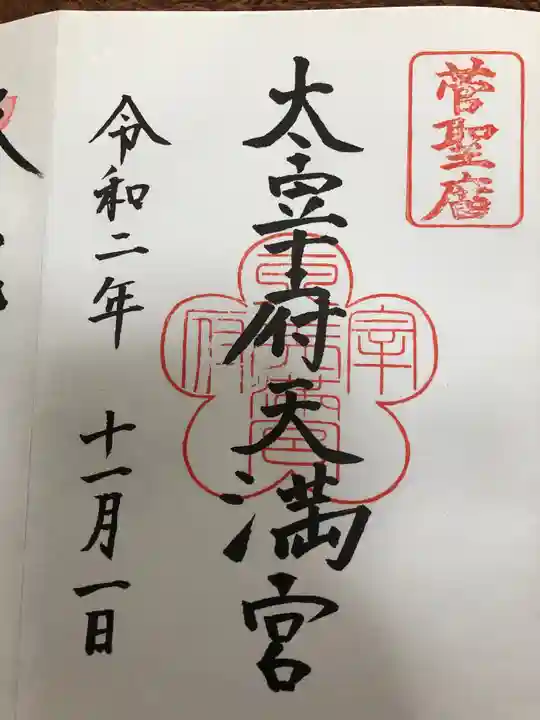 菅聖庿
太宰府天満宮
令和二年 十一月一日